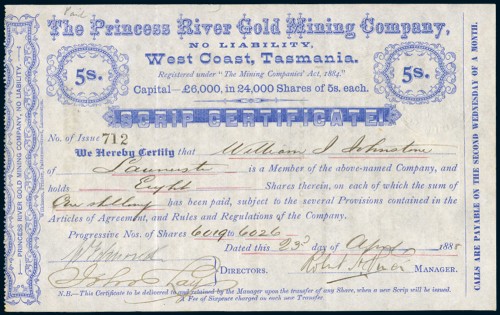 Paid
The Princess River Gold Mining Company,
NO LIABILITY,
West Coast, Tasmania.
Registered under "The Mining Companies' Act, 1884."
Capital—£6,000, in 24,000 Shares of 5s. each.
5s.
5s.
SCRIP CERTIFICATE.
No. of Issue 712
We Hereby Certify that William J Johnstone
of Launceston is a Member of the above-named Company, and
holds Eight Shares therein, on each of which the sum of
One shilling has been paid, subject to the several Provisions contained in the
Articles of Agreement, and Rules and Regulations of the Company.
Progressive Nos. of Shares 6019 to 6026
Dated this 23d day of 1888
DIRECTORS.
MANAGER.
N.B.—This Certificate to be delivered to and retained by the Manager upon the transfer of any Share, when a new Scrip will be issued.
A Fee of Sixpence charged on each new Transfer.
PRINCESS RIVER GOLD MINING COMPANY, NO LIABILITY.
CALLS ARE PAYABLE ON THE SECOND WEDNESDAY OF A MONTH.